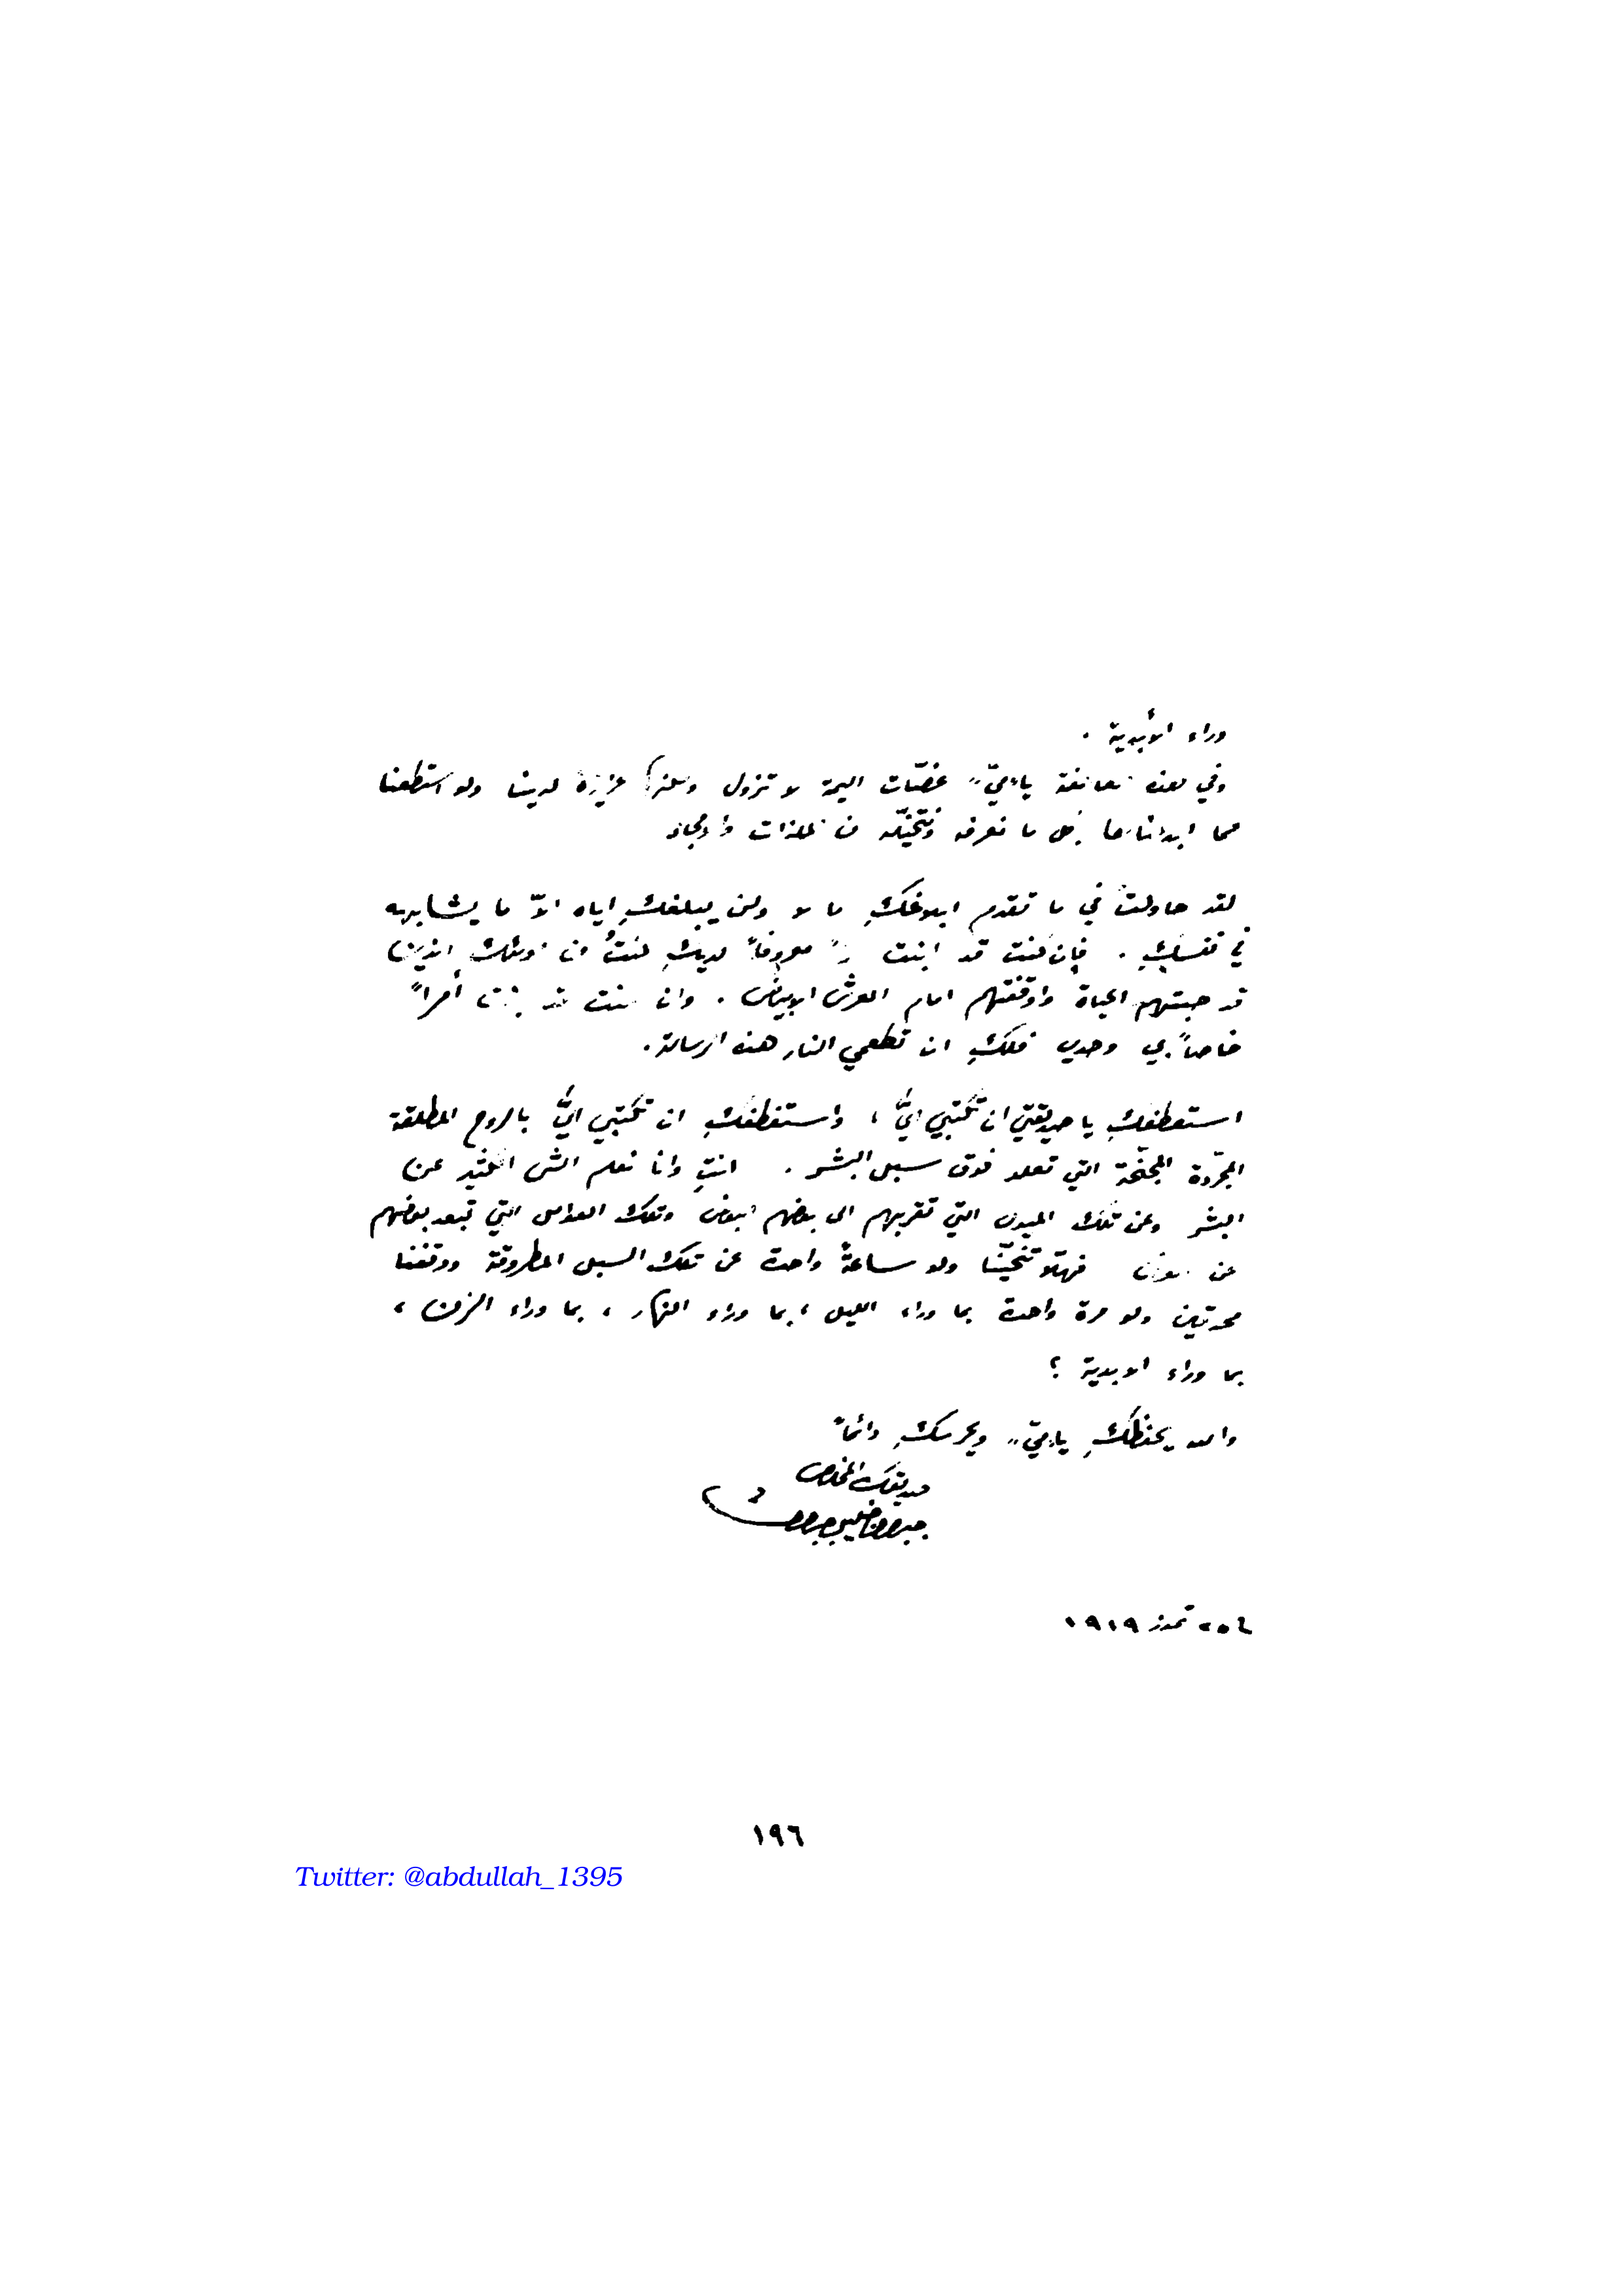 وراء الأبدية .
وفي هذه العاطفة يا "ميّ" غصّات اليمة لا تزول ولكنها عزيزة لدينا ولو استطعنا
لما ابدلناها بكل ما نعرفه ونتخيّله من الملذات والامجاد
لقد حاولتُ في ما تقدم ابلاغكِ ما لا ولن يبلغكِ اياه الاّ ما يشابهه
في نفسكِ . فإن كنت قد ابنت سراً معروفاً لديكِ كنتُ من اولئك الذين
قد حبتهم الحياة واوقفتهم امام العرش الابيض . وان كنت قد ابنت أمراً
خاصاً بي وحدي فلكِ ان تطعمي النار هذه الرسالة .
استعطفكِ يا صديقتي ان تكتبي اليَّ ، واستعطفكِ ان تكتبي اليَّ بالروح المطلقة
المجرّدة المجنّحة التي تعلو فوق سبل البشر . انتِ وانا نعلم الشي الكثير عن
البشر وعن تلك الميول التي تقربهم الى بعضهم البعض وتلك العوامل التي تبعد بعضهم
عن البعض فهلّا تنحّينا ولو ساعةً واحدة عن تلك السبل المطروقة ووقفنا
محدقين ولو مرة واحدة بما وراء الليل ، بما وراء النهار ، بما وراء الزمن ،
بما وراء الابدية ؟
والله يحفظكِ يا "ميّ" ويحرسكِ دائماً
صديقك المخلص
جبران خليل جبران
٢٥ تموز ١٩١٩
١٩٦
Twitter: @abdullah_1395